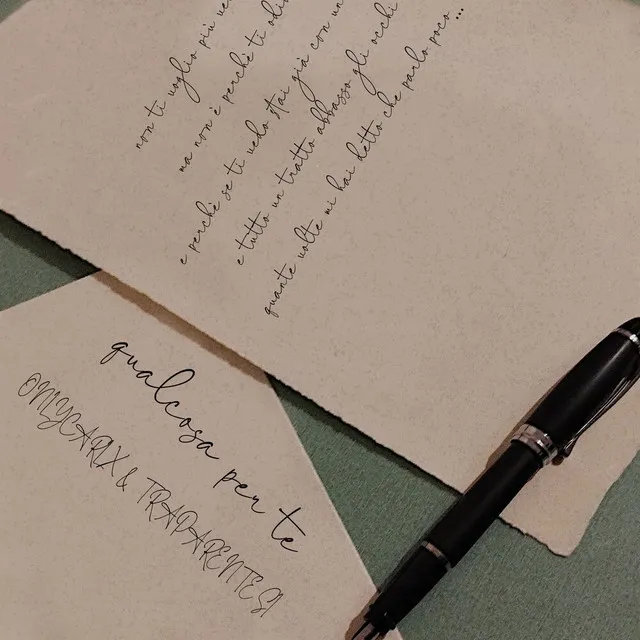 non ti voglio più ve
ma non è perchè ti odi
e perchè se ti vedo stai già con un
e tutto un tratto abbasso gli occhi
quante volte mi hai detto che parlo poco...
qualcosa per te
ONLYCARLX & TRAPARENTESI